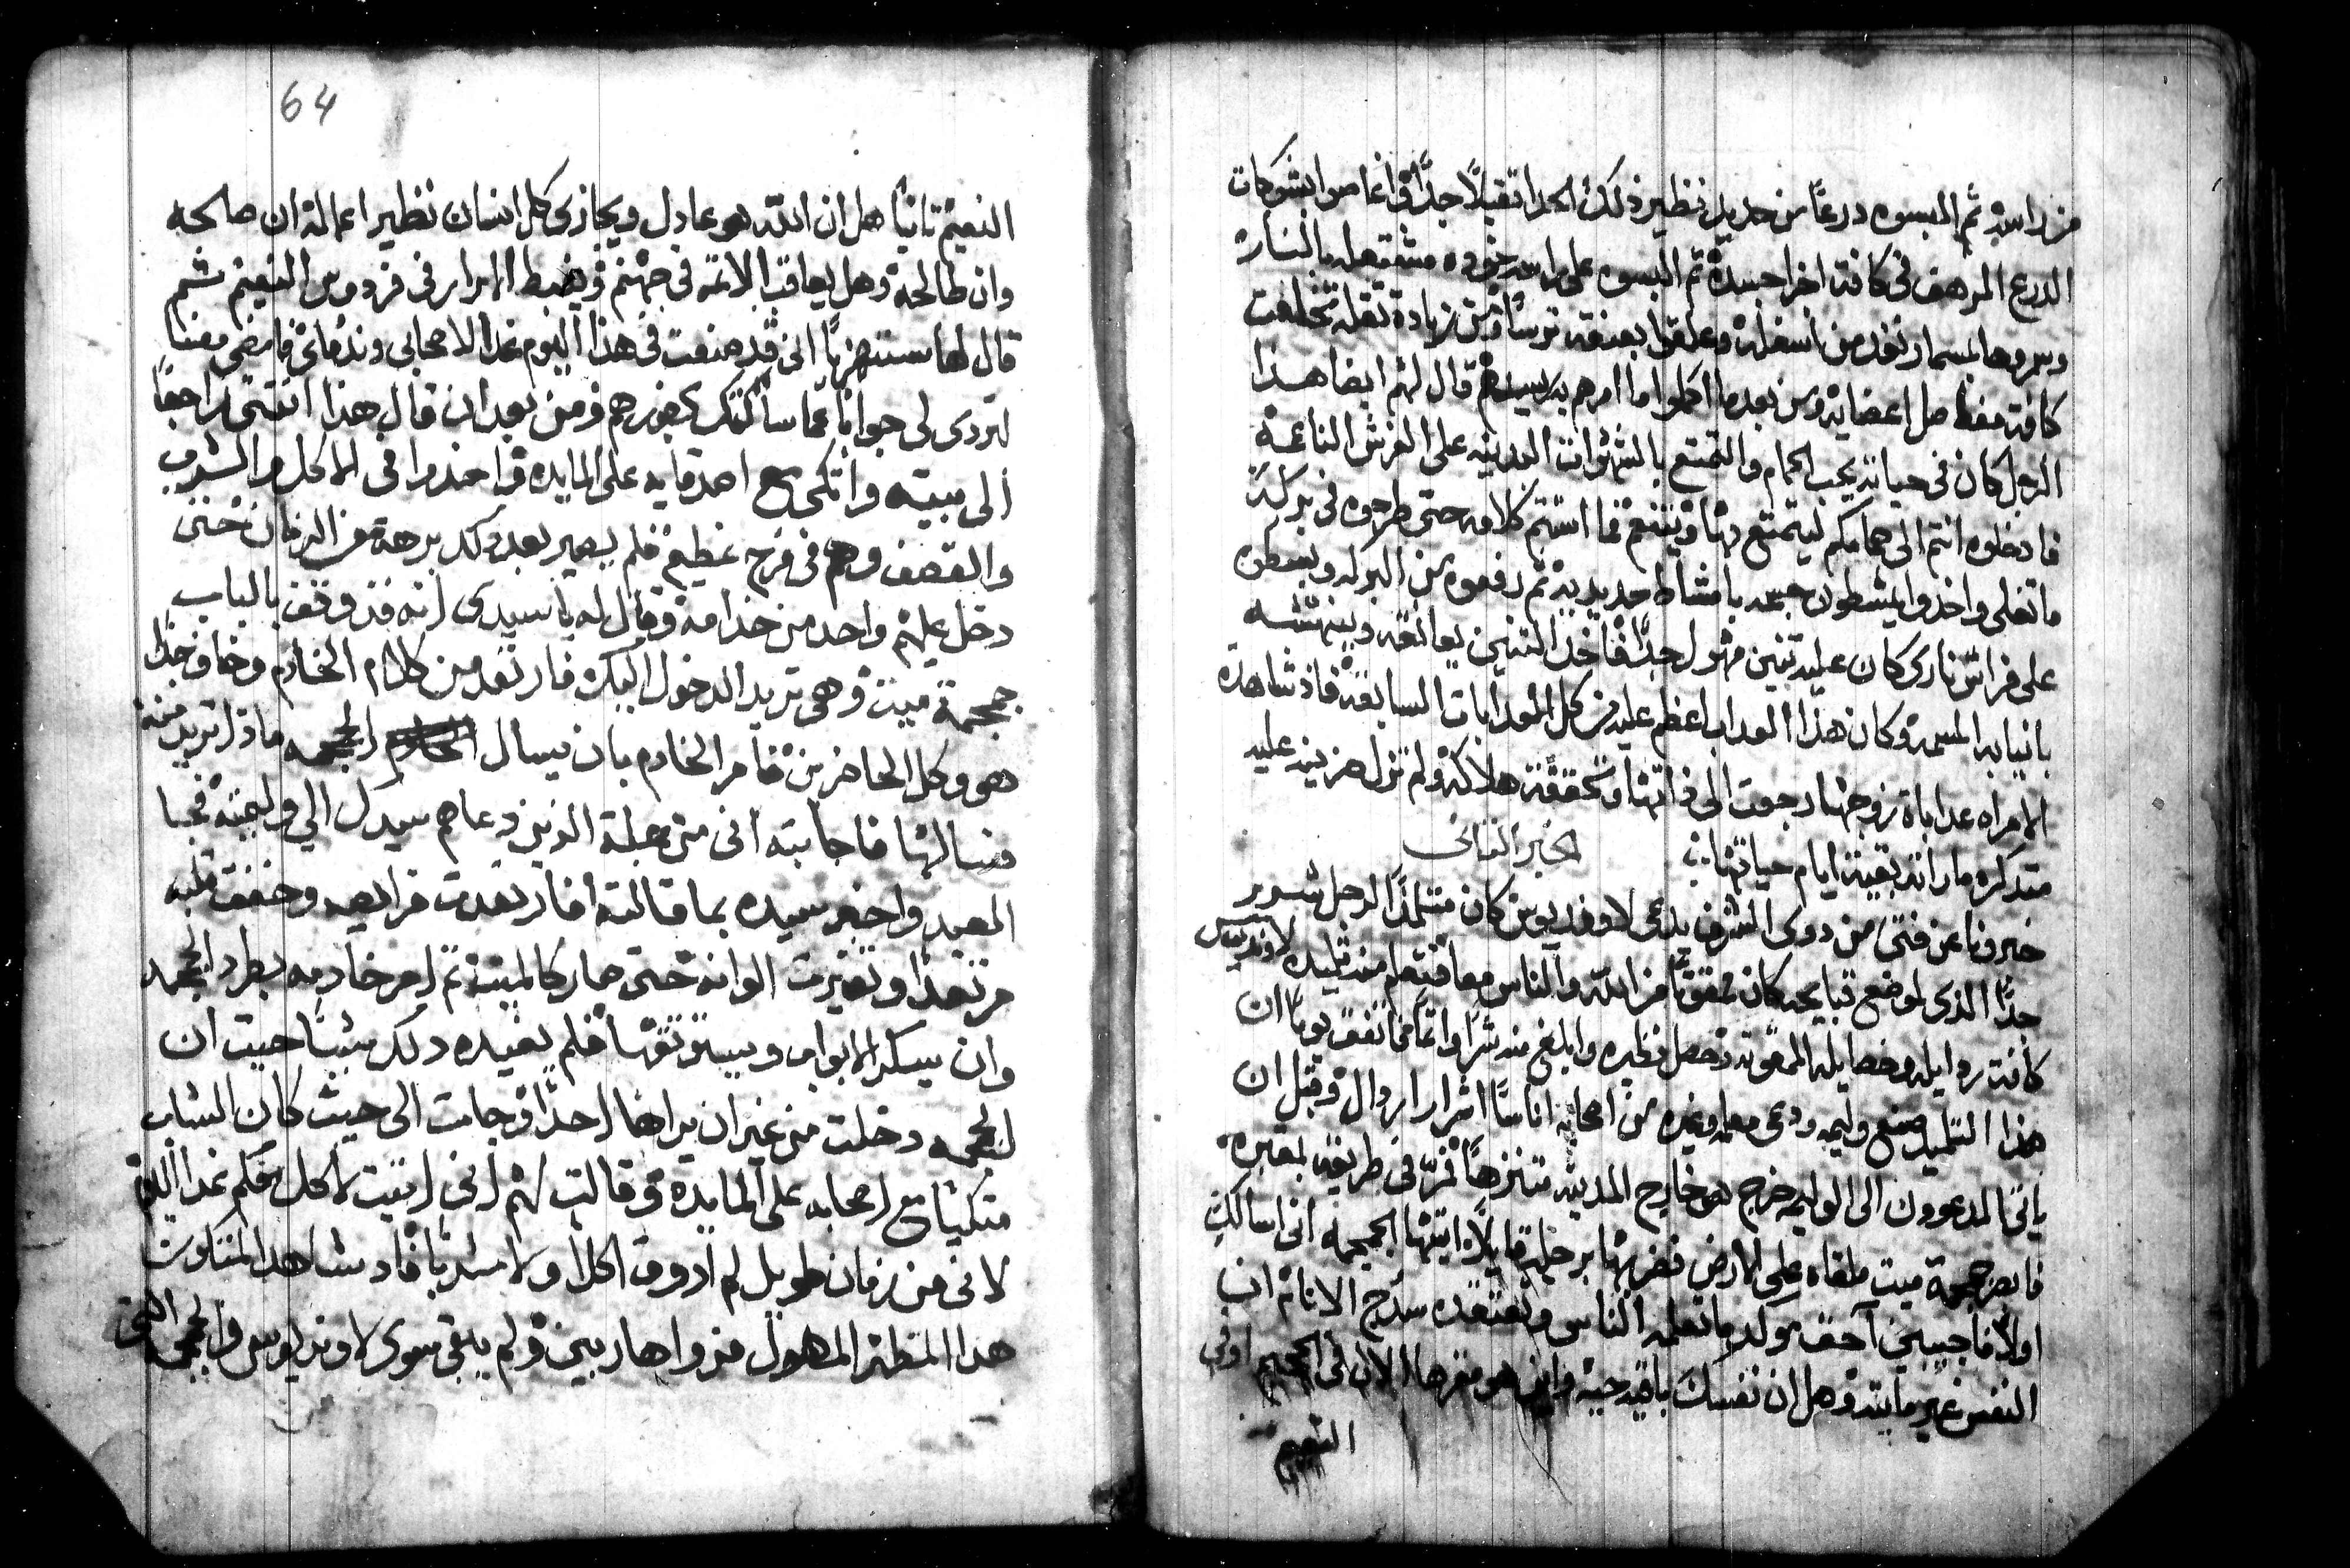 من راسه ثم البسوه درعًا من حديد نظير ذلك الحدا تقيلًا جدًّا وانغاصوا بشوكات
الدرع المرهف في كافة اخرا جسده ثم البسوه على راسه خوده مشتعله بالنار
وسمروها بمسمار نفد من اسفله وعلقوا بعنقه ترسًا ومن زيادة تقله تخلعت
كافة مفاصل اعضايه ومن بعد ما اكملوا ما امرهم به سيدهم قال لهم ايضا هذا
الرجل كان في حياته يحب الحمام والتمتع بالشهوات البدنيه على الفرش الناعمة
فادخلوه انتم الى حمامكم ليتمتع بها ويتنعم فما استتم كلامه حتى طرحوه في بركة
ما تغلى واخذوا يمشطون جسمه بامشاط حديديه ثم رفعوه من البركه وبسطوه
على فراش ناري كان عليه تنين مهول جدًا فاخذ التنين يعانقه وينهشه
بانيابه المسمه وكان هذا العداب اعظم عليه من كل العدابات السابقه فاذ شاهدة
الامراه عدابات زوجها رجعت الى ذاتها وتحققة هلاكه ولم تزل حزينه عليه
متدكره ما راته بقية ايام حياتها
الخبر الثاني
خبرونا عن فتى من دوى الشرف يدعى لاوندريوس كان متتلمذًا لرجل شرير
جدًّا الذي لموضع قبايحه كان ممقوتًا من الله والناس معا فتعلم منه تلميده لاوندريوس
كافة رذايله وخصايله الممقوته وحصل نظيره وابلغ منه شرًا واثمًا فاتفق يومًا ان
هذا التلميد صنع وليمه ودعى معلمه وغيره من اصحابه اناسًا اشرار ارذال وقبل ان
ياتي المدعوون الى الوليمه خرج هو خارج المدينه متنزهًا فمرّ في طريقه بمقبره
فابصر جمجمة ميت ملقاه على الارض فضربها برجله قايلًا ايتها الجمجمه اني اسالكِ
اولًا فاجيبيني أحق هو لد ما تعلمه الناس وتعتقده سدج الانام ان
النفس غير مايته وهل ان نفسك باقيه حيه واين هو مقرها الان في الجحيم او في
النعيم
64
النعيم ثانيًا هل ان الله هو عادل ويجازي كل انسان نظير اعماله ان صالحه
وان طالحه وهل يعاقب الاثمه في جهنم ويضبط الابرار في فردوس النعيم ثم
قال لها مستهزيًا اني قد صنعت في هذا اليوم غدا لاصحابي وندماي فامضي معنا
لتردي لي جوابًا عما سالتك بحضورهم ومن بعد ان قال هذا انثنى راجعًا
الى بيته واتكى مع اصدقايه على المايده واخدوا في الاكل والشرب
والقصف وهم في فرح عظيم فلم يصير بعد ذلك برهة من الزمان حتى
دخل عليهم واحد من خدامه وقال له يا سيدي انه قد وقف بالباب
جمجمة ميت وهي تريد الدخول اليك فارتعد من كلام الخادم وخاف جدًا
هو وكل الحاضرين فامر الخادم بان يسال الجمجمه ماذا تريد منه
فسالها فاجابته اني من جملة الذين دعاهم سيدك الى وليمته فجا
العبد واخبر سيده بما قالته فارتعدت فرايصه وخفق قلبه
مرتعدًا وتغيرت الوانه حتى صار كالميت ثم امر خادمه بطرد الجمجمه
وان يسكر الابواب ويستوثقها فلم يفيده دلك شيًا حيث ان
الجمجمه دخلت من غير ان يراها احدًا وجات الى حيث كان الشاب
متكيًا مع اصحابه على المايده وقالت لهم اني اتيت لاكل معكم غدا اليوم
لاني من زمان طويل لم ادوق اكلًا ولا مشربًا فاد شاهد المتكون
هذا المنظر المهول فروا هاربين ولم يبقى سوى لاوندريوس والجمجمه التي